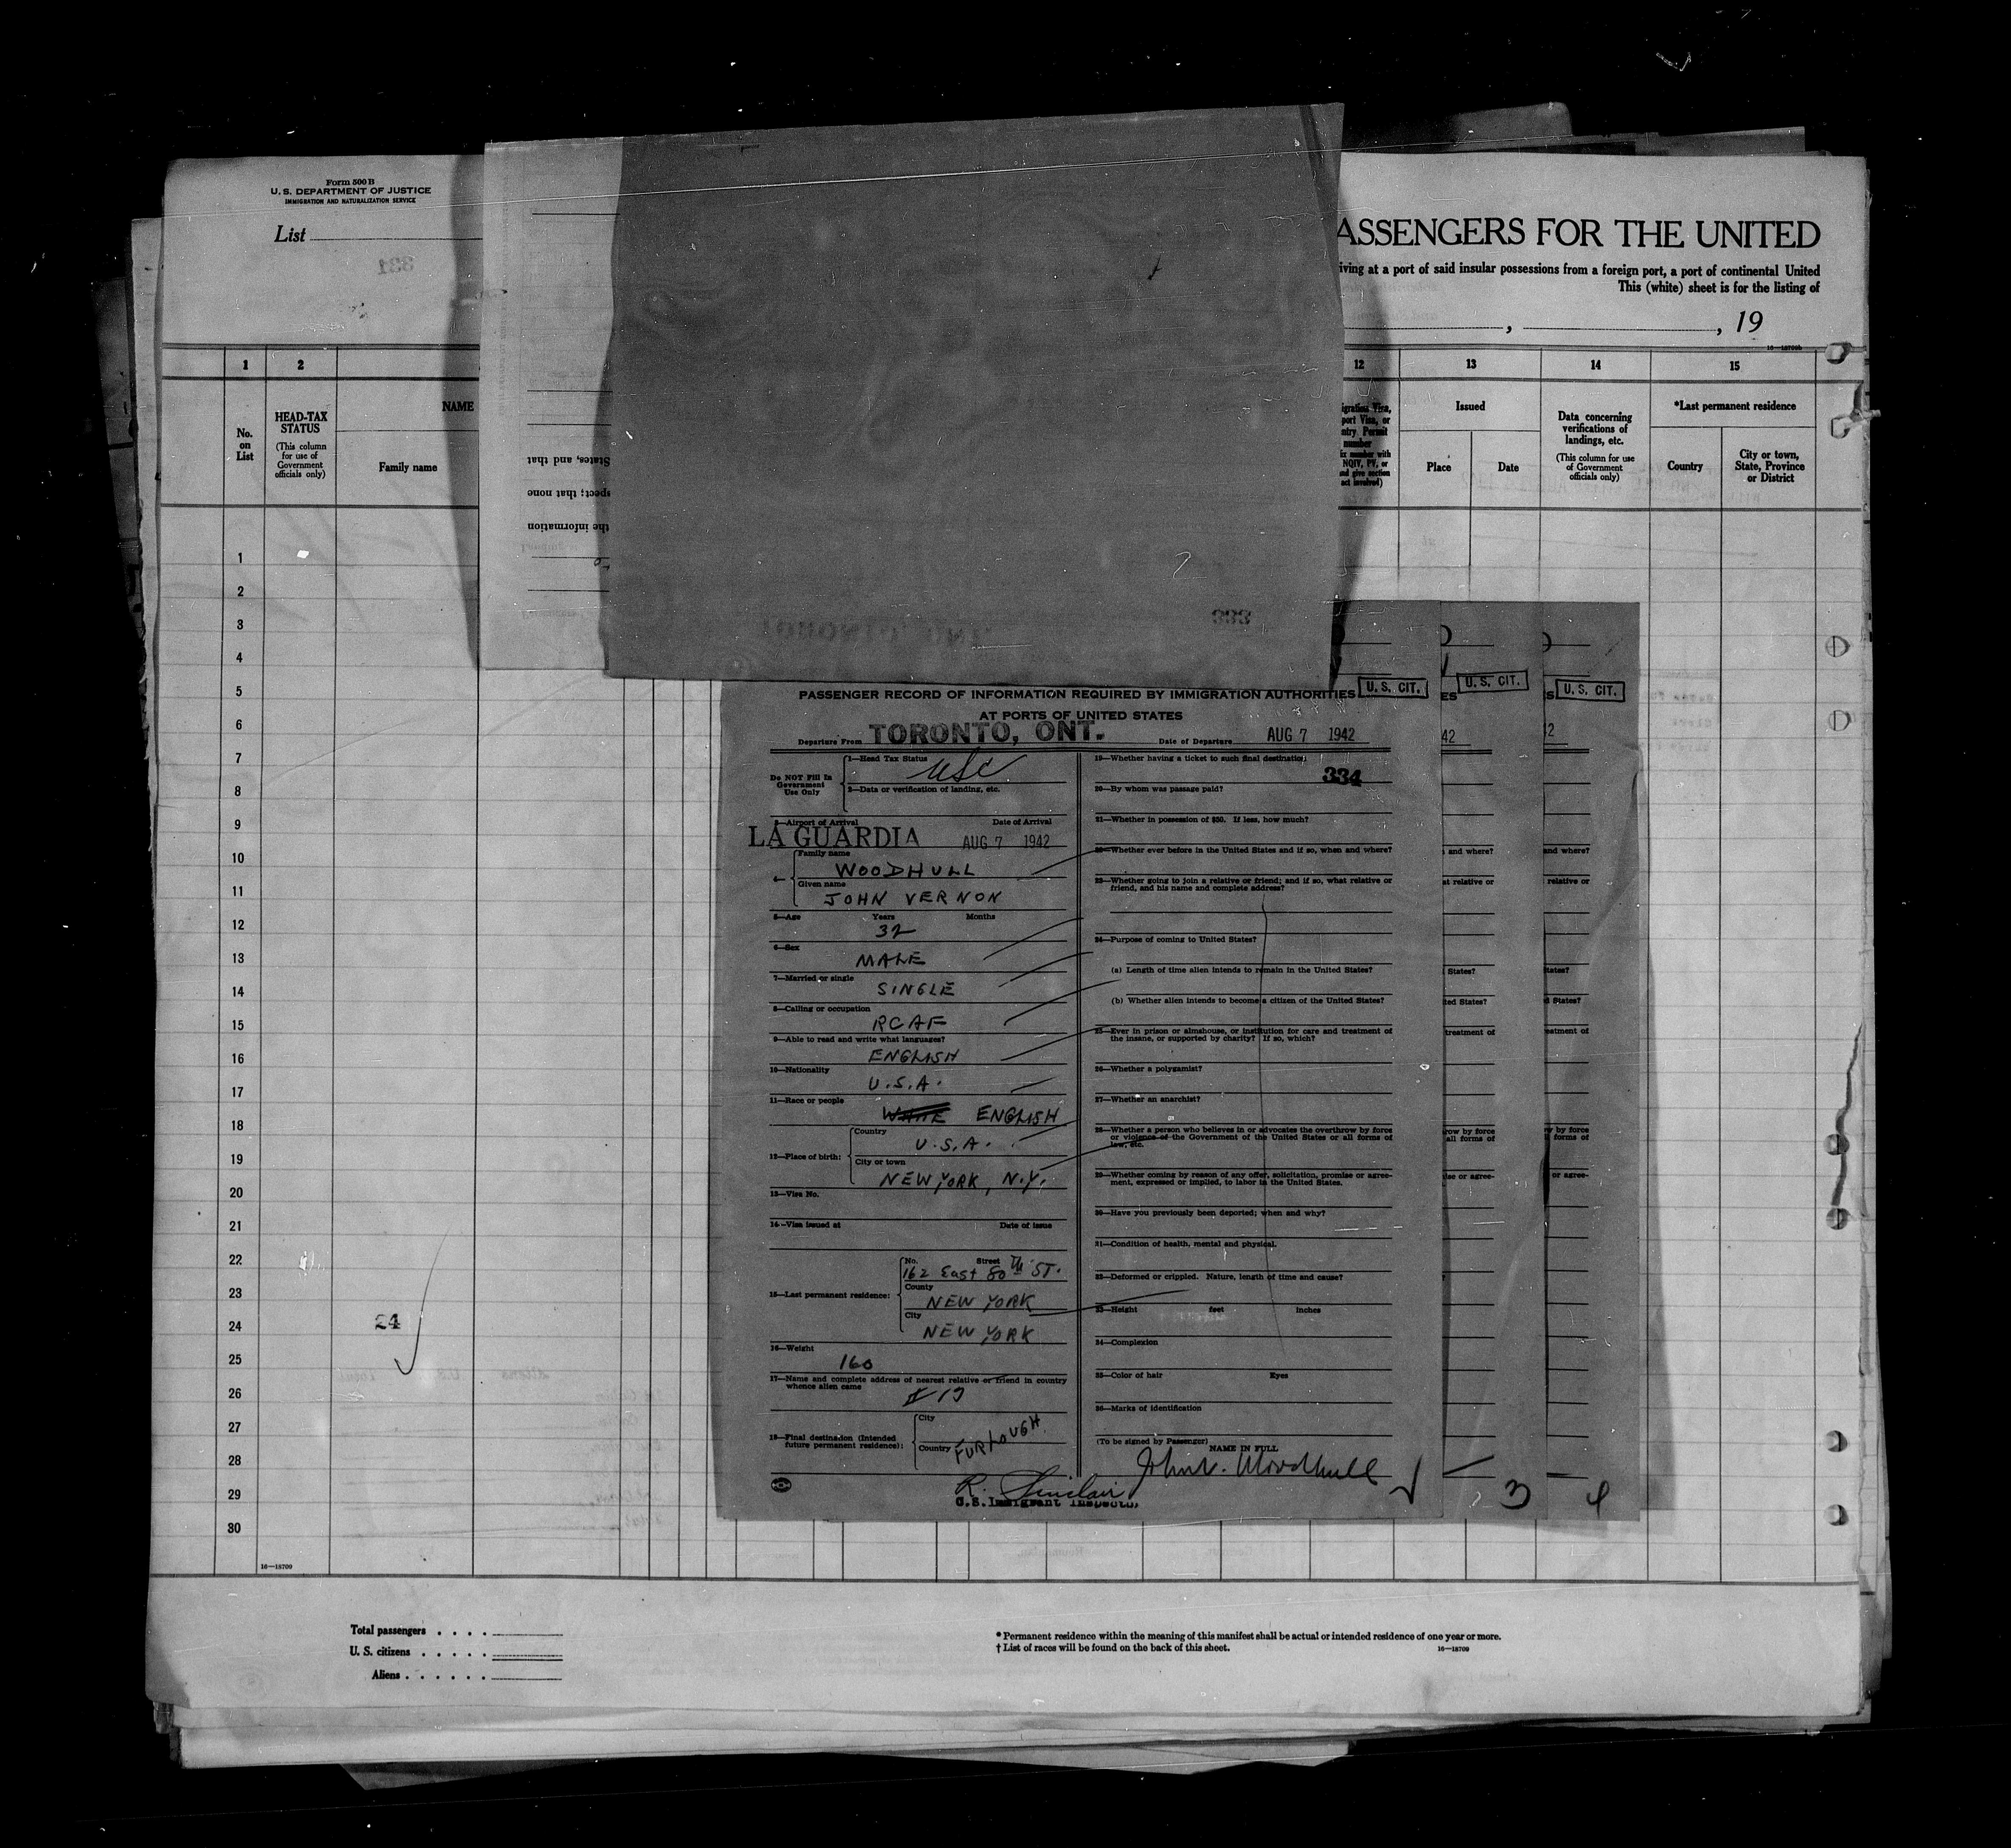 Form 500 B
U. S. DEPARTMENT OF JUSTICE
IMMIGRATION AND NATURALIZATION SERVICE
List
331
ASSENGERS FOR THE UNITED
iving at a port of said insular possessions from a foreign port, a port of continental United
This (white) sheet is for the listing of
, , 19
1 2 12 13 14 15
No. on List
HEAD-TAX STATUS
(This column for use of Government officials only)
NAME
Family name
States, and that
spect; that none
the information
igration Visa,
port Visa, or
ntry Permit
number
ix number with
NQIV, PV, or
and give section
act involved)
Issued
Place
Date
Data concerning verifications of landings, etc.
(This column for use of Government officials only)
*Last permanent residence
Country
City or town, State, Province or District
1
2
3
4
5
6
7
8
9
10
11
12
13
14
15
16
17
18
19
20
21
22
23
24
25
26
27
28
29
30
24
16—18709
TORONTO, ONT.
333
PASSENGER RECORD OF INFORMATION REQUIRED BY IMMIGRATION AUTHORITIES
AT PORTS OF UNITED STATES
U. S. CIT.
U. S. CIT.
U. S. CIT.
Departure From TORONTO, ONT.
Date of Departure AUG 7 1942
42
42
Do NOT Fill In
Government
Use Only
1—Head Tax Status
USC
2—Data or verification of landing, etc.
3—Airport of Arrival Date of Arrival
LA GUARDIA AUG 7 1942
4— Family name
WOODHULL
Given name
JOHN VERNON
5—Age Years Months
32
6—Sex
MALE
7—Married or single
SINGLE
8—Calling or occupation
RCAF
9—Able to read and write what languages?
ENGLISH
10—Nationality
U.S.A.
11—Race or people
WHITE ENGLISH
12—Place of birth:
Country
U.S.A.
City or town
NEW YORK, N.Y.
13—Visa No.
14—Visa issued at Date of issue
15—Last permanent residence:
No. Street
162 East 80TH ST.
County
NEW YORK
City
NEW YORK
16—Weight
160
17—Name and complete address of nearest relative or friend in country
whence alien came
18—Final destination (Intended
future permanent residence):
City
Country
FURLOUGH
R. Sinclair
U.S. Immigrant Inspector
19—Whether having a ticket to such final destination:
334
20—By whom was passage paid?
21—Whether in possession of $50. If less, how much?
22—Whether ever before in the United States and if so, when and where?
23—Whether going to join a relative or friend; and if so, what relative or
friend, and his name and complete address?
24—Purpose of coming to United States?
(a) Length of time alien intends to remain in the United States?
(b) Whether alien intends to become a citizen of the United States?
25—Ever in prison or almshouse, or institution for care and treatment of
the insane, or supported by charity? If so, which?
26—Whether a polygamist?
27—Whether an anarchist?
28—Whether a person who believes in or advocates the overthrow by force
or violence of the Government of the United States or all forms of
law, etc.
29—Whether coming by reason of any offer, solicitation, promise or agree-
ment, expressed or implied, to labor in the United States.
30—Have you previously been deported; when and why?
31—Condition of health, mental and physical.
32—Deformed or crippled. Nature, length of time and cause?
33—Height feet inches
34—Complexion
35—Color of hair Eyes
36—Marks of identification
(To be signed by Passenger)
NAME IN FULL
John V. Woodhull
3
4
Total passengers
U. S. citizens
Aliens
* Permanent residence within the meaning of this manifest shall be actual or intended residence of one year or more.
† List of races will be found on the back of this sheet.
16—18709